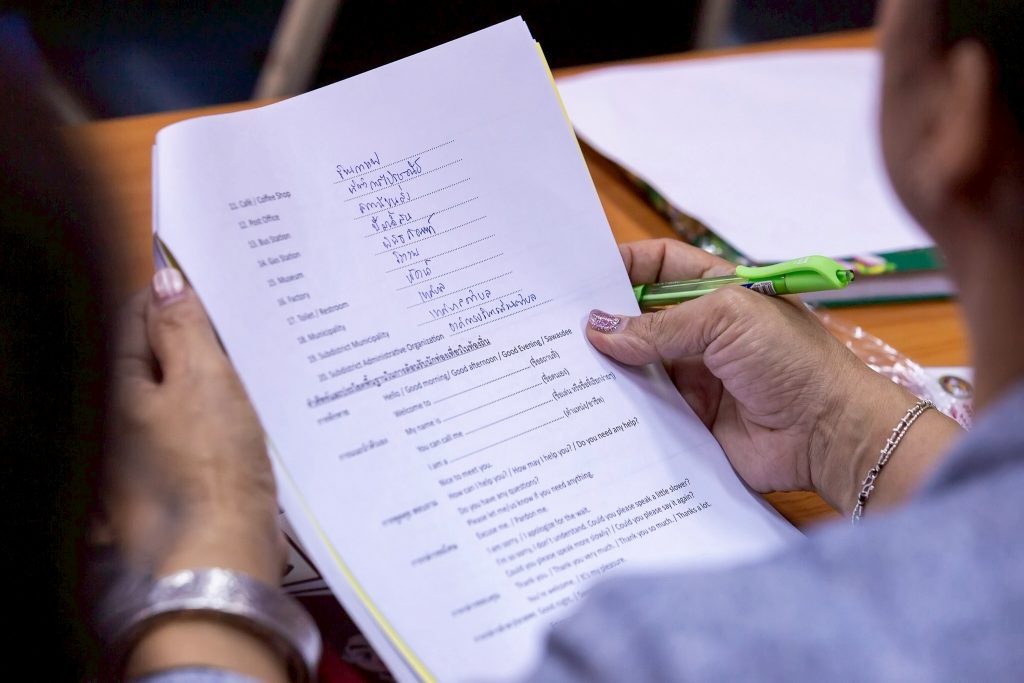 11. Café / Coffee Shop ร้านกาแฟ
12. Post Office ที่ทำการไปรษณีย์
13. Bus Station สถานีขนส่ง
14. Gas Station ปั๊มน้ำมัน
15. Museum พิพิธภัณฑ์
16. Factory โรงงาน
17. Toilet / Restroom
18. Municipality เทศบาล
19. Subdistrict Municipality เทศบาลตำบล
20. Subdistrict Administrative Organization องค์การบริหารส่วนตำบล
คำศัพท์และประโยคพื้นฐานในการต้อนรับนักท่องเที่ยวในท้องถิ่น
การทักทาย Hello / Good morning / Good afternoon / Good Evening / Sawasdee
Welcome to (ชื่อสถานที่)
การแนะนำตนเอง My name is (ชื่อตนเอง)
You can call me
I am a (ตำแหน่ง/อาชีพ)
Nice to meet you.
How can I help you? / How may I help you? / Do you need any help?
Do you have any questions?
Please let me/us know if you need anything.
Excuse me. / Pardon me.
I am sorry. / I apologize for the wait.
I'm sorry. I don't understand. Could you please speak a little slower?
Could you please speak more slowly? / Could you please say it again?
Thank you. / Thank you very much. / Thank you so much. / Thanks a lot.
You're welcome. / It's my pleasure.